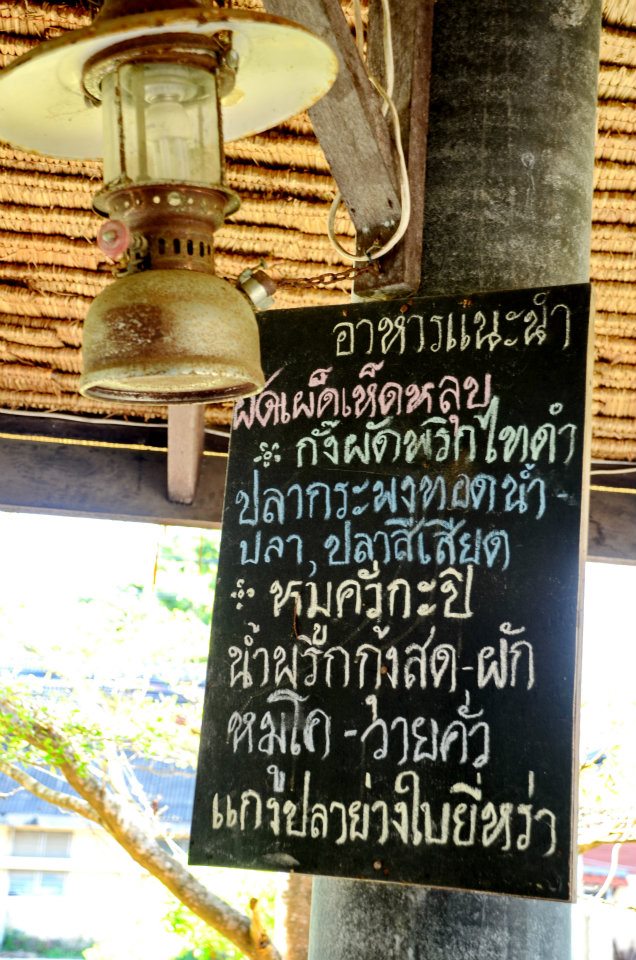 อาหารแนะนำ
ผัดเผ็ดเห็ดหลุบ
กั้งผัดพริกไทดำ
ปลากระพงทอดน้ำ
ปลา, ปลาสีเสียด
หมูคั่วกะปิ
น้ำพริกกุ้งสด-ผัก
หมูโค-วายคั่ว
แกงปลาย่างใบยี่หร่า